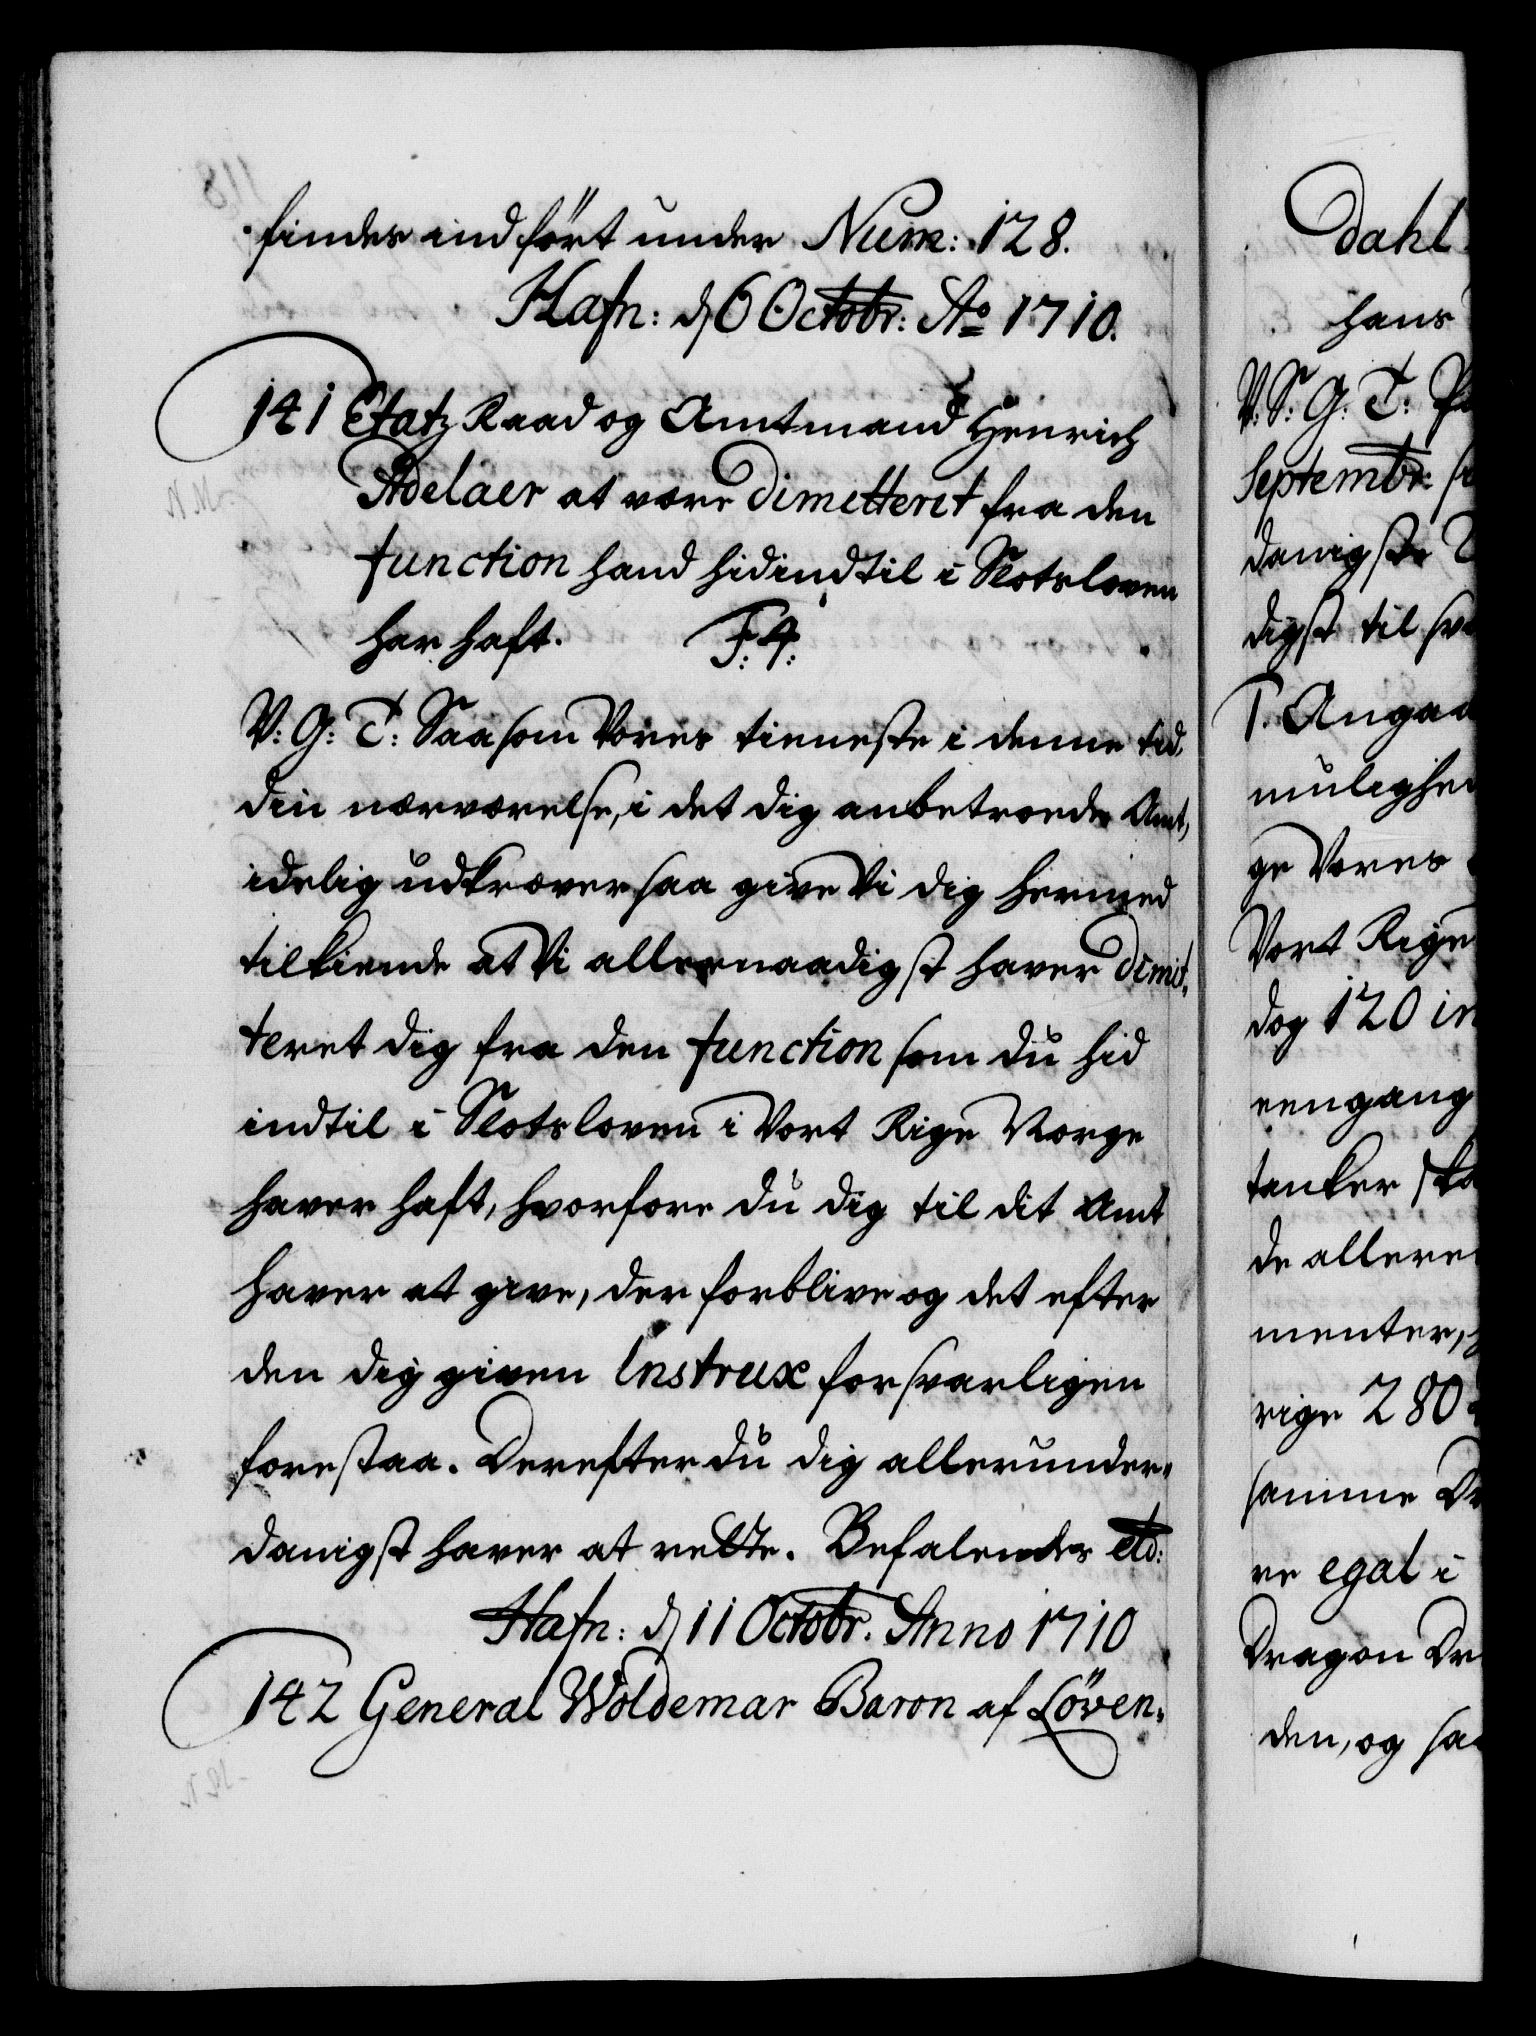 findes indført under Num: 128.
Hafn: d 6 Octobr: Ao 1710.
141 Etatz Raad og Amtmand Henrich
Adelaer at være dimetteret fra den
function hand hidindtil i Slotsloven
har haft. F. 4.
V: G: T: Saasom Vores tieneste i denne tid
din nærværelse, i det dig anbetroede Amt,
idelig udkræver saa give Vi dig hermed
tilkiende at Vi allernaadigst haver dimit,
teret dig fra den function som du hid
indtil i Slotsloven i Vort Rige Norge
haver haft, hvorfore du dig til dit Amt
haver at give, der forblive og det efter
den dig given Instrux forsvarligen
forestaa. Derefter du dig allerunder,
danigst haver at rette. Befalendes etc:
Hafn: d 11 Octobr. Anno 1710
142 General Woldemar Baron af Löven,
Dahl
hans
V: S: G: T:
Septembr:
danigste
digst til
1. Angaa
mulighe
ge Vores
Vort Rige
dog 120 in
eengang
tanker ska
de allere
menter,
rige 280
samme Dr
re egal i
Dragon Dr
den, og saa